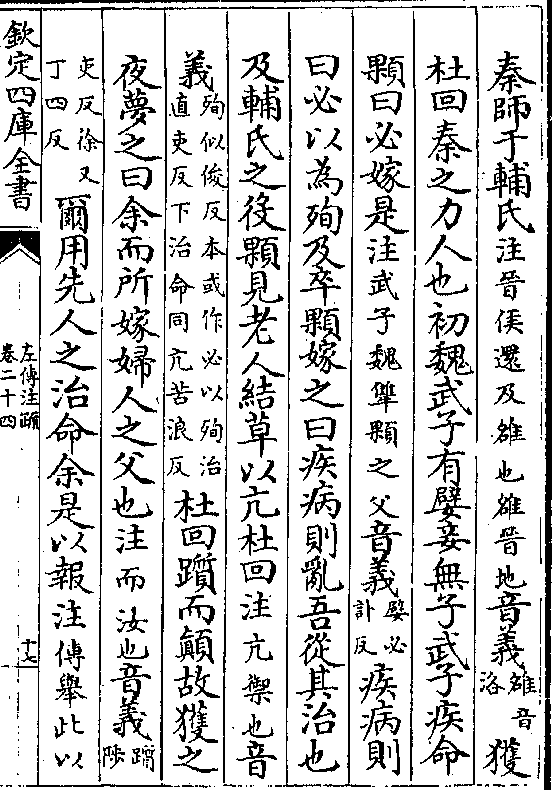 秦師于輔氏注晉侯還及雒也雒晉地音義雒音洛獲
杜回秦之力人也初魏武子有嬖妾無子武子疾命
顆曰必嫁是注武子魏犨顆之父音義嬖必計反疾病則
曰必以為殉及卒顆嫁之曰疾病則亂吾從其治也
及輔氏之役顆見老人結草以亢杜回注亢禦也音
義殉似俊反本或作必以殉治直吏反下治命同亢苦浪反杜回躓而顛故獲之
夜夢之曰余而所嫁婦人之父也注而汝也音義躓陟
吏反徐又丁四反爾用先人之治命余是以報注傳舉此以
欽定四庫全書
左傳注疏
卷二十四
十七